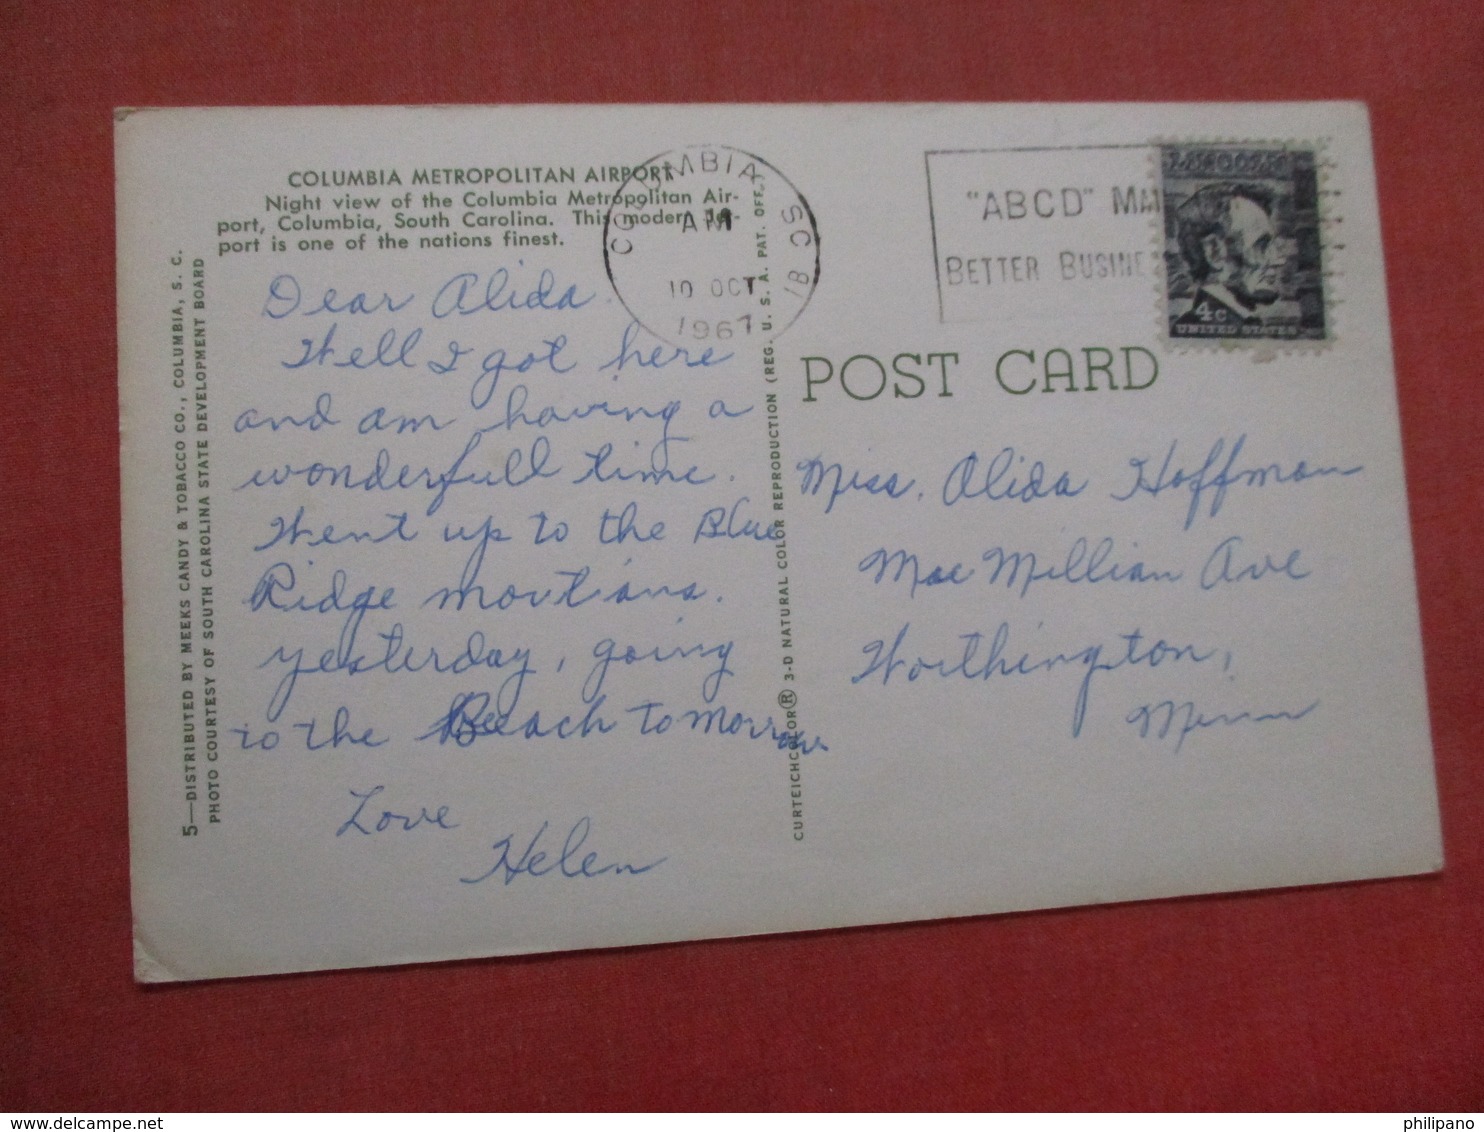 COLUMBIA METROPOLITAN AIRPORT
Night view of the Columbia Metropolitan Air-
port, Columbia, South Carolina. This modern
port is one of the nations finest.
Dear Alida.
Well I got here
and am having a
wonderfull time.
Went up to the Blue
Ridge
yesterday, going
to the Beach tomorrow
Love
Helen
5—DISTRIBUTED BY MEEKS CANDY & TOBACCO CO., COLUMBIA, S. C.
PHOTO COURTESY OF SOUTH CAROLINA STATE DEVELOPMENT BOARD
CURTEICHCOLOR® 3-D NATURAL COLOR REPRODUCTION (REG. U. S. A. PAT. OFF.)
COLUMBIA SC 81
AM
10 OCT
1967
"ABCD"
BETTER
4c
UNITED STATES
POST CARD
Miss. Alida Hoffman
Mac Millian Ave
Worthington,
Minn
http://www.delcampe.net
philipano